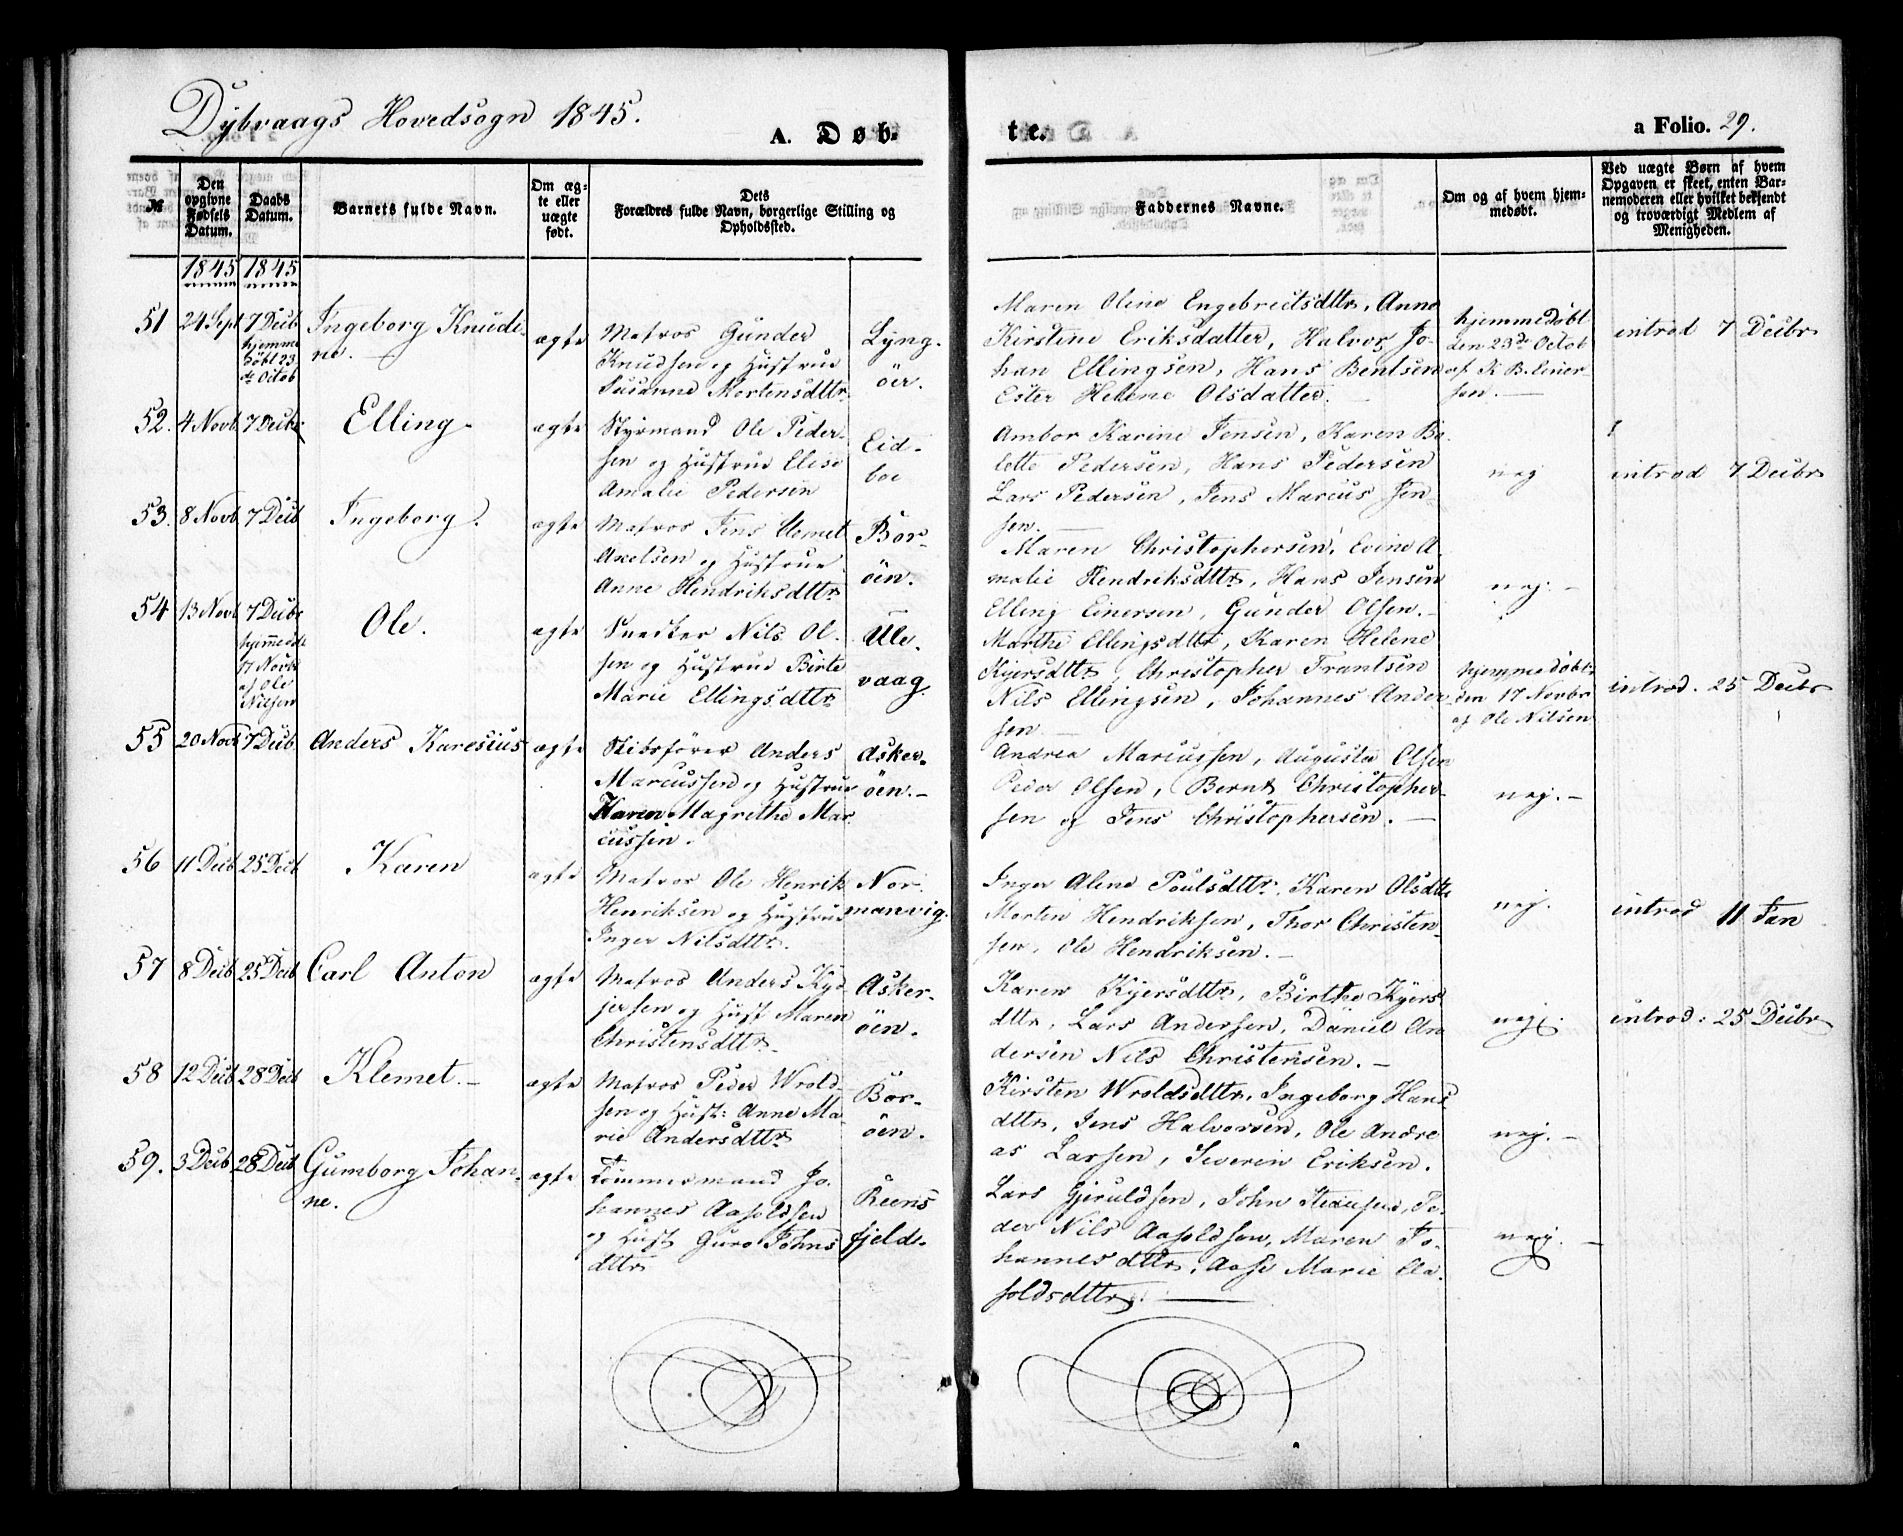 Dybvaags Hovedsogn 1845.
A. Døb-
te.
a Folio. 29.
№
Den opgivne Fødsels Datum.
Daabs Datum.
Barnets fulde Navn.
Om ægte eller uægte født.
Dets Forældres fulde Navn, borgerlige Stilling og Opholdssted.
Faddernes Navne.
Om og af hvem hjemmedøbt.
Ved uægte Børn af hvem Opgaven er skeet, enten Barnemoderen eller hvilket bekjendt og troværdigt Medlem af Menigheden.
1845 1845
51 24 Sept 7 Decb hjemme døbt 23 de Octob
Ingeborg Knudi-
ne.
ægte
Matros Gunder
Knudsen og Hustrue
Susanne Mortensdttr
Lyng-
öer.
Maren Oline Engebretsdttr, Anne
Kirstine Eriksdatter, Halvor Jo-
han Ellingsen, Hans Bentsen
Ester Helene Olsdatter.
hjemmedøbt
den 23de Octob
af K. B. Einer-
sen.
introd 7 Decbr
52. 4 Novb 7 Decbr
Elling
ægte
Styrmand Ole Peder-
sen og Hustrue Elise
Amalie Pedersen
Eid-
boe
Ambor Karine Jensen, Karen Bo-
lette Pedersen, Hans Pedersen
Lars Pedersen, Jens Marcus Jen-
sen.
nej
introd 7 Decbr
53. 8 Novb 7 Decb
Ingeborg.
ægte
Matros Jens Clemet
Axelsen og Hustrue
Anne Hendriksdttr
Bor-
öen.
Maren Christophersen, Evine A-
malie Hendriksdttr, Hans Jensen
Elling Einersen, Gunder Olsen.
nej.
54 13 Novb 7 Decbr hjemmedøbt 17 Novbr af Ole Nilsen
Ole.
ægte
Snedker Nils Ol-
sen og Hustrue Birte
Marie Ellingsdttr
Ule-
vaag.
Marthe Ellingsdttr, Karen Helene
Kjersdttr, Christopher Frantsen
Nils Ellingsen, Johannes Ander-
sen
hjemmedøbt
den 17 Novbr
af Ole Nilsen
introd. 25 Decbr
55 20 Novb 7 Decb.
Anders Karesius
ægte
Skibsfører Anders
Marcussen og Hustrue
Karen Magrethe Mar-
cussen.
Asker-
öen.
Andrea Marcussen, Augusta Olsen
Peder Olsen, Bernt Christopher-
sen og Jens Christophersen.
nej.
56 11 Decb 25 Decb
Karen
ægte
Matros Ole Henrik
Henriksen og Hustrue
Inger Nilsdttr.
Nor-
manvig.
Inger Alene Poulsdttr, Karen Olsdttr
Morten Hendriksen, Thor Christen-
sen, Ole Hendriksen.
nej.
introd 11 Jan
57 8 Decb 25 Decb
Carl Anton
ægte
Matros Anders Kyd-
jersen og Hust Maren
Christensdttr
Asker-
öen.
Karen Kjersdttr, Birthe Kjers
dttr, Lars Andersen, Daniel An
dersen Nils Christensen.
nej.
introd: 25 Decbr
58 12 Decb 28 Decb
Klemet.
ægte
Matros Peder Wrold-
sen og Hust: Anne Ma-
rie Andersdttr
Bor-
öen.
Kirsten Wroldsdttr, Ingeborg Hans
dttr, Jens Halvorsen, Ole Andre
as Larsen, Severin Eriksen.
nej.
59. 3 Decb 28 Decb
Gumborg Johan-
ne.
ægte
Tømmermand Jo-
hannes Aasoldsen
og Hust Guro Johns
dttr
Reens
fjeld.
Lars Gjeruldsen, John, Pe-
der Nils Aasoldsen, Maren Jo-
hannesdttr, Aase Marie Aa-
soldsdttr.
nej.